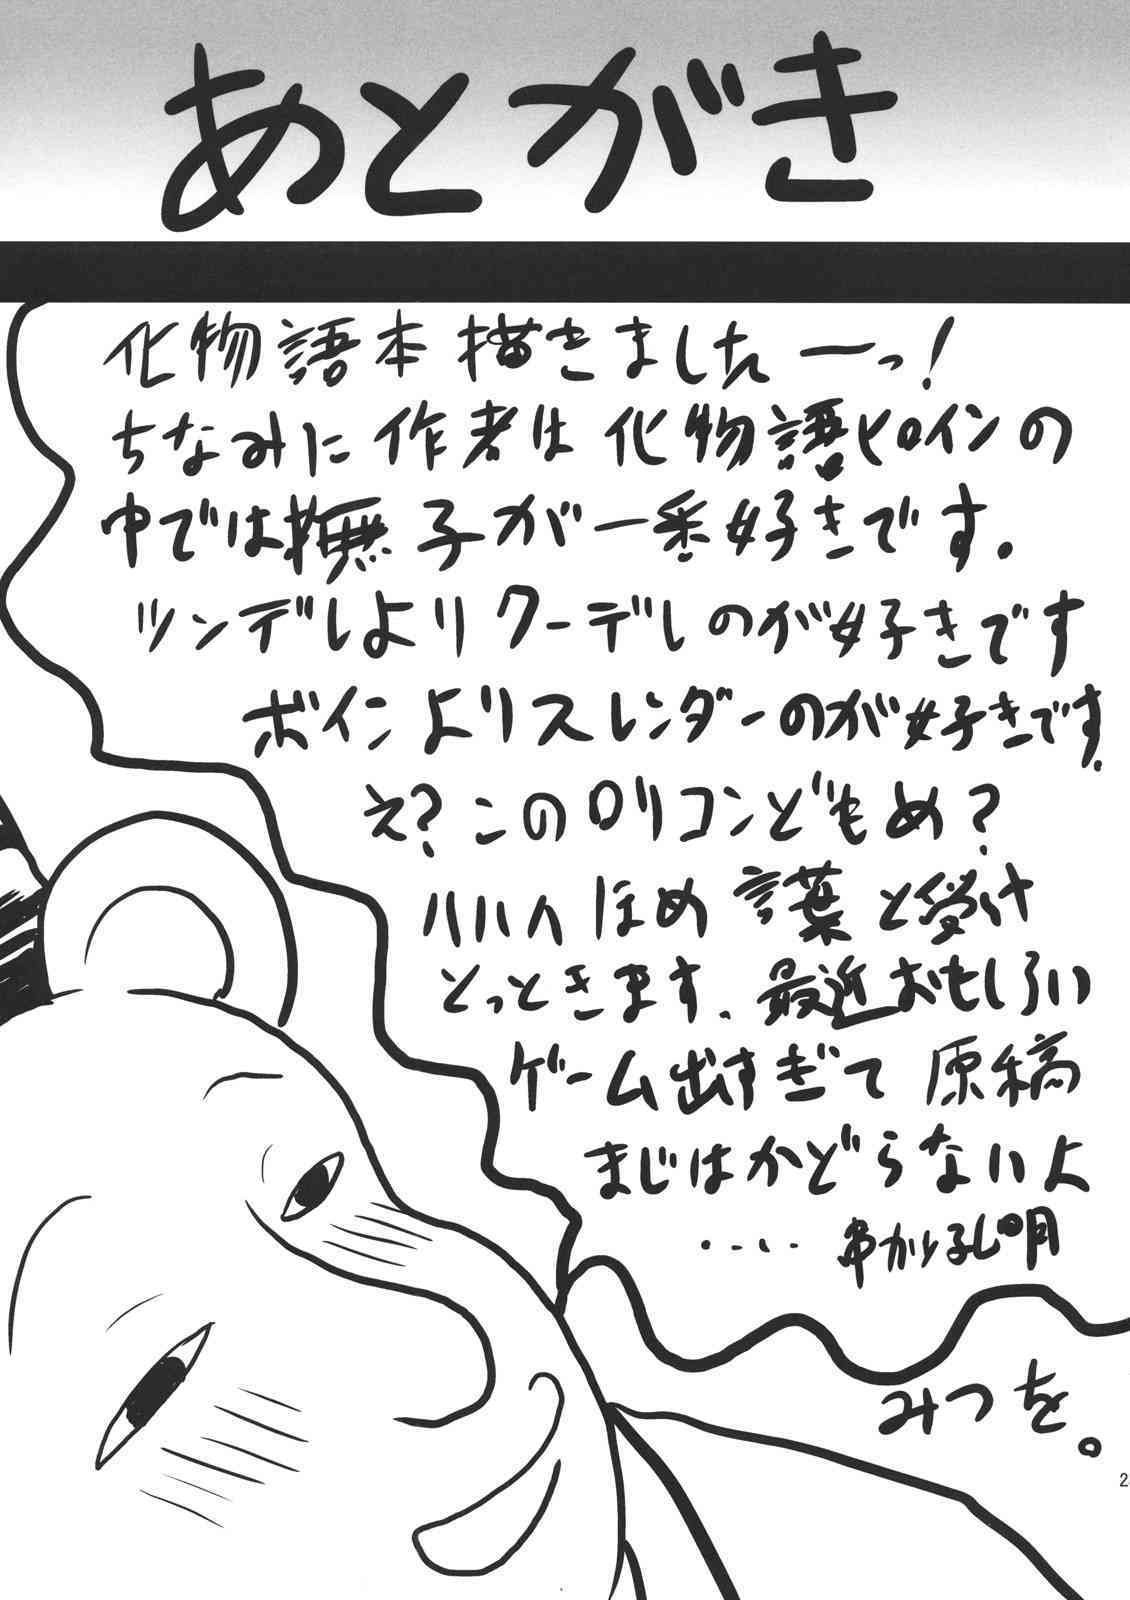 あとがき
化物語本描きましたーっ!
ちなみに作者は化物語ヒロインの
中では撫子が一番好きです。
ツンデレよりクーデレのが好きです
ボインよりスレンダーのが好きです。
え?このロリコンどもめ?
ハハハほめ言葉と受け
とっときます。最近おもしろい
ゲーム出すぎて原稿
まじはかどらないよ
・・・・ 串かツ孔明
みつを。